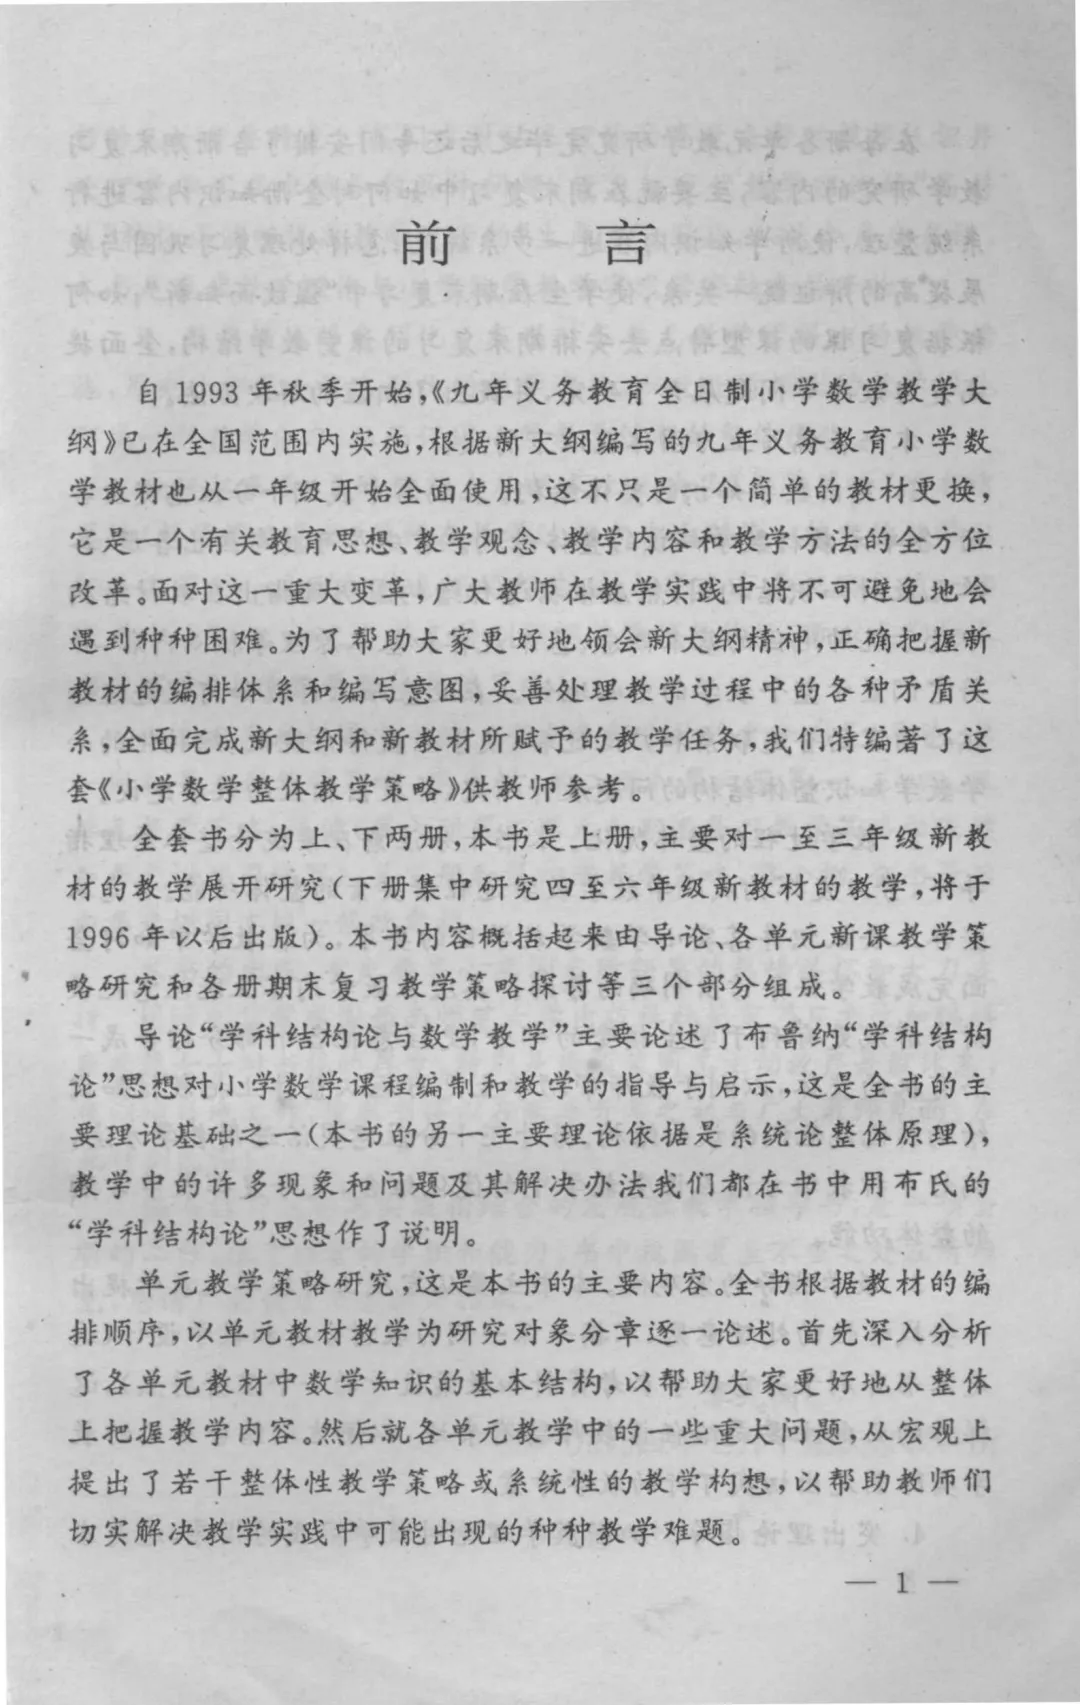 前言
自1993年秋季开始，《九年义务教育全日制小学数学教学大
纲》已在全国范围内实施，根据新大纲编写的九年义务教育小学数
学教材也从一年级开始全面使用，这不只是一个简单的教材更换，
它是一个有关教育思想、教学观念、教学内容和教学方法的全方位
改革。面对这一重大变革，广大教师在教学实践中将不可避免地会
遇到种种困难。为了帮助大家更好地领会新大纲精神，正确把握新
教材的编排体系和编写意图，妥善处理教学过程中的各种矛盾关
系，全面完成新大纲和新教材所赋予的教学任务，我们特编著了这
套《小学数学整体教学策略》供教师参考。
全套书分为上、下两册，本书是上册，主要对一至三年级新教
材的教学展开研究（下册集中研究四至六年级新教材的教学，将于
1996年以后出版）。本书内容概括起来由导论、各单元新课教学策
略研究和各册期末复习教学策略探讨等三个部分组成。
导论“学科结构论与数学教学”主要论述了布鲁纳“学科结构
论”思想对小学数学课程编制和教学的指导与启示，这是全书的主
要理论基础之一（本书的另一主要理论依据是系统论整体原理），
教学中的许多现象和问题及其解决办法我们都在书中用布氏的
“学科结构论”思想作了说明。
单元教学策略研究，这是本书的主要内容。全书根据教材的编
排顺序，以单元教材教学为研究对象分章逐一论述。首先深入分析
了各单元教材中数学知识的基本结构，以帮助大家更好地从整体
上把握教学内容。然后就各单元教学中的一些重大问题，从宏观上
提出了若干整体性教学策略或系统性的教学构想，以帮助教师们
切实解决教学实践中可能出现的种种教学难题。
— 1 —